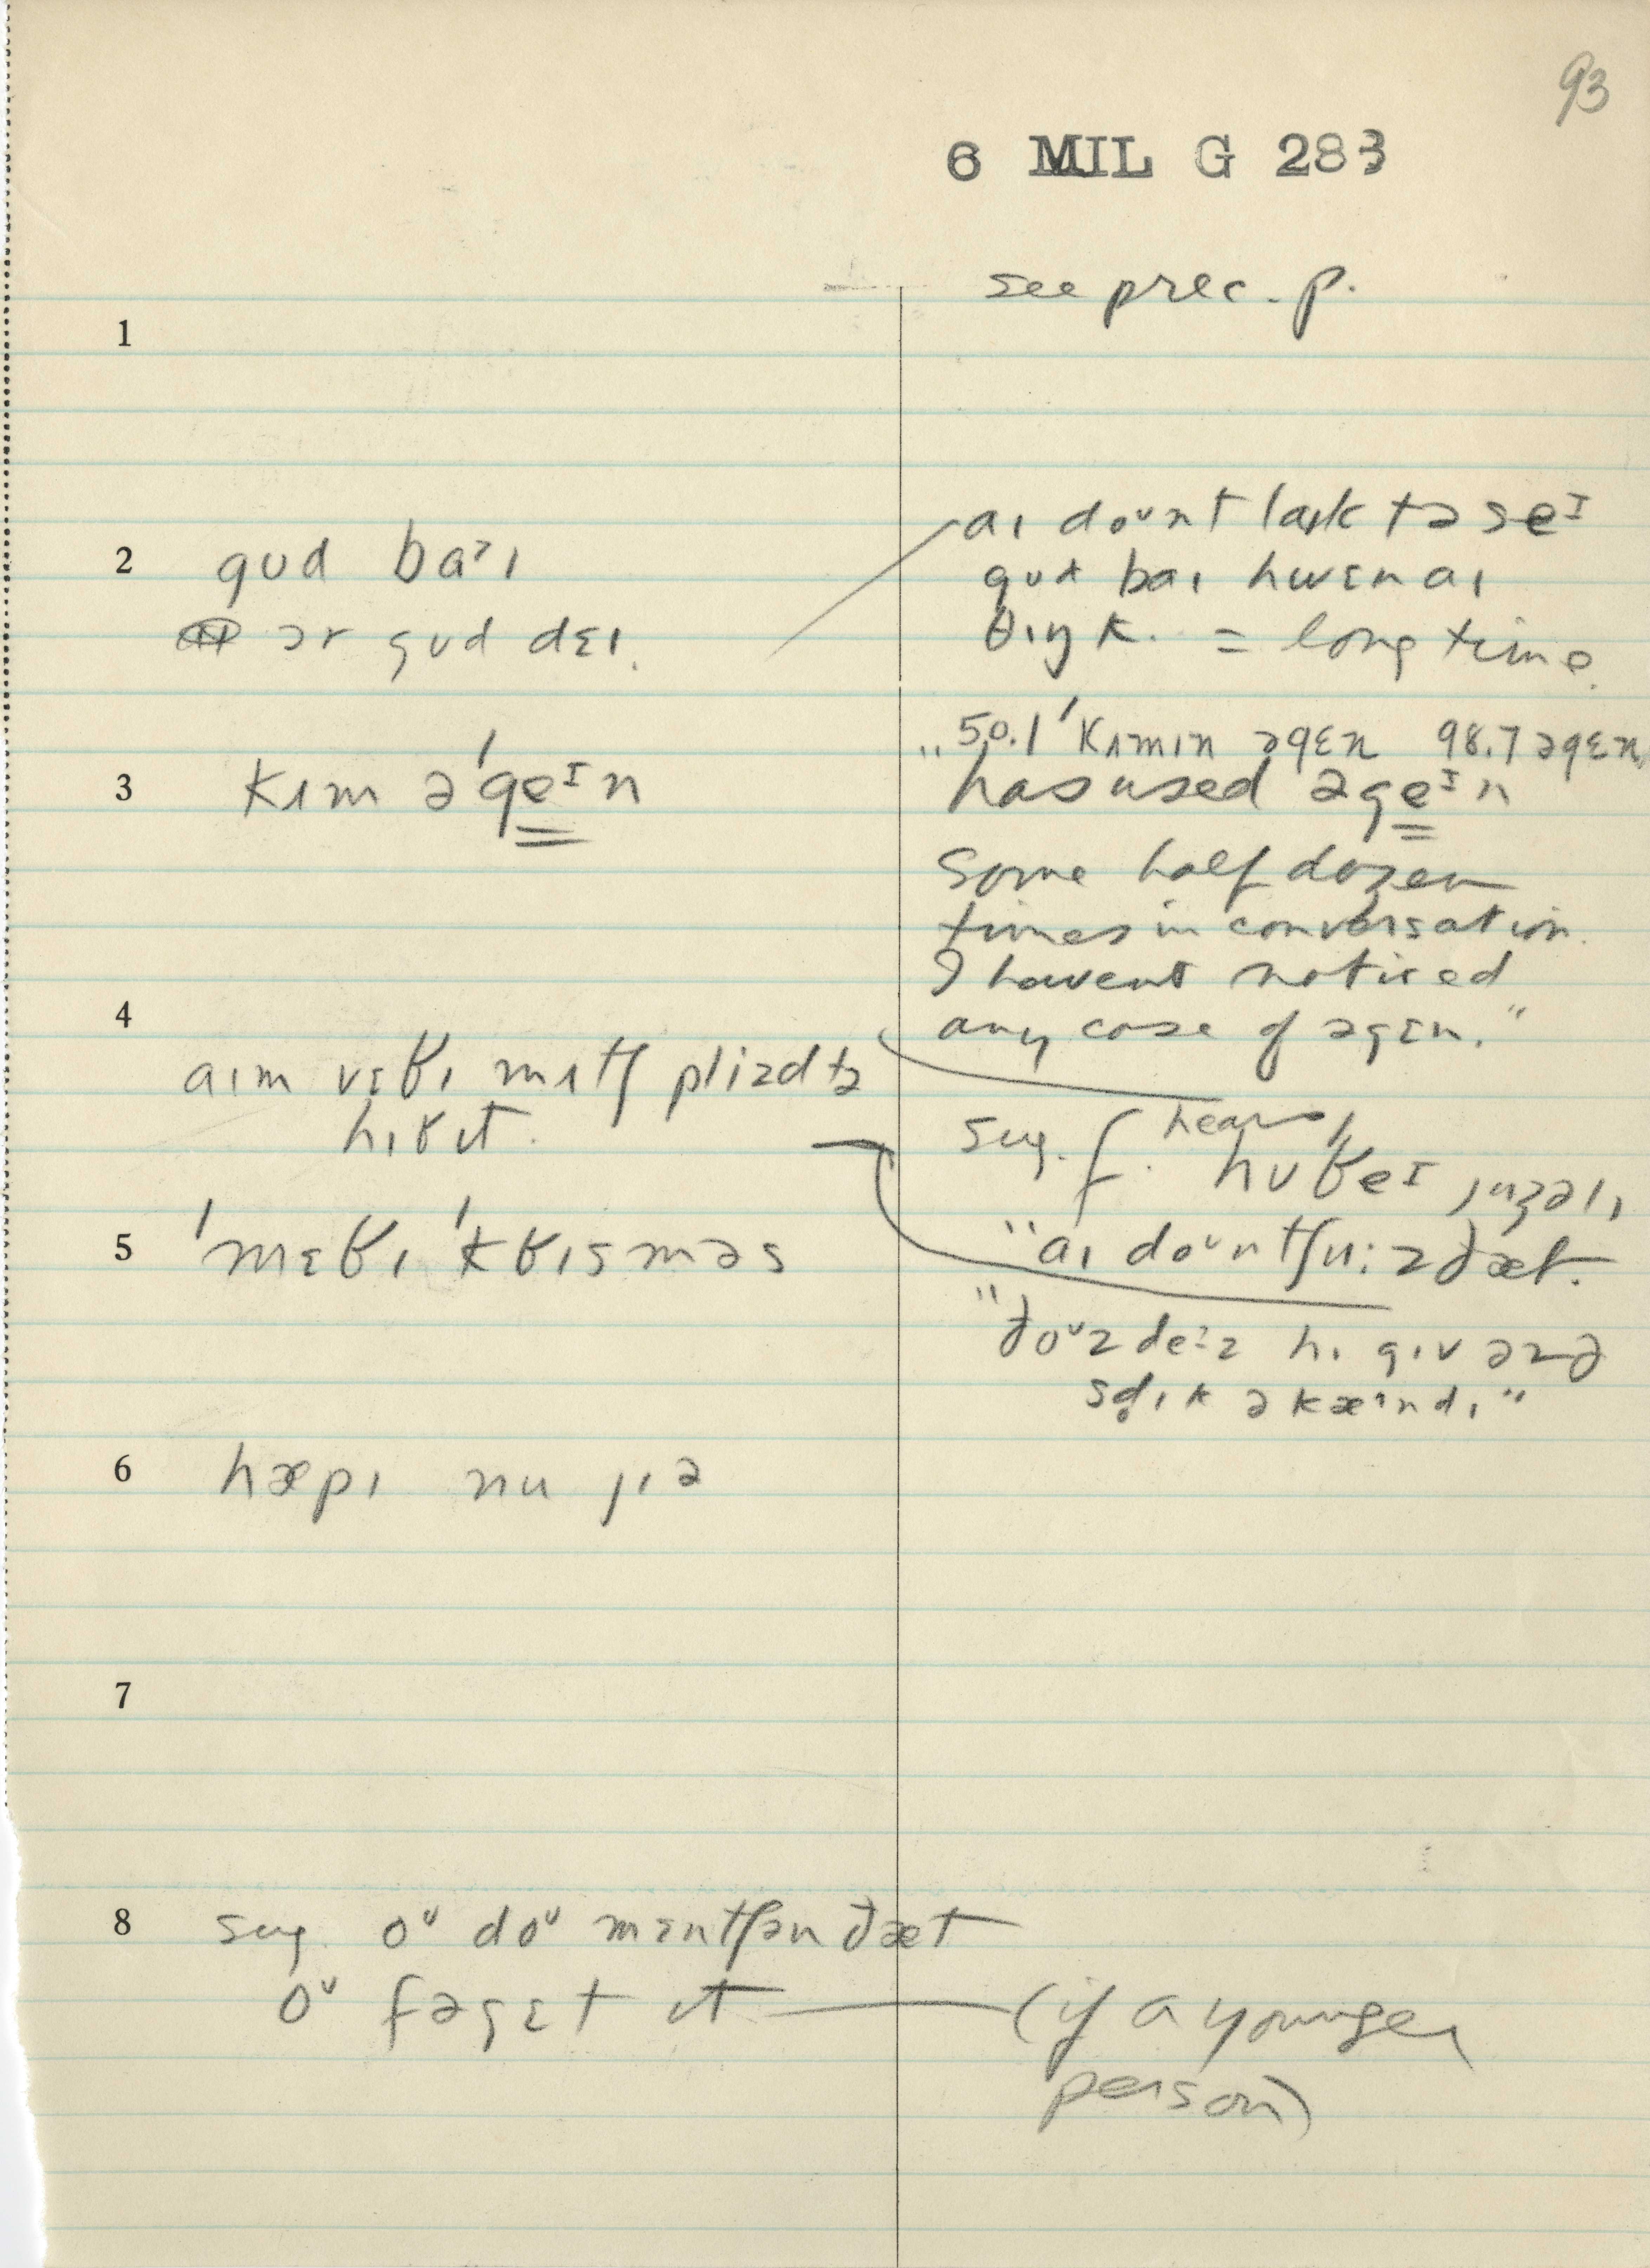 93
6 MIL G 283
see prec. p.
1
2 gʊd baᵊɪ
ɔr gʊd dɛɪ.
aɪ doᵘnt laɪk tə seᴵ
gʊd baɪ hwɛn aɪ
θɪŋk. = long time.
3 kɪm ə'geᴵn
"50.1 'kʌmɪn əgɛn 98.7 əgɛn.
has used əgeᴵn
some half dozen
times in conversation.
I havent noticed
any case of əgɛn."
4
aɪm vɛʁɪ mʌtʃ pliəd tə
hɪʁ ɪt.
sug. f. hears
'hʊʁeᴵ juʒəlɪ
5 'mɛʁɪ 'kʁɪsməs
"aɪ doᵘn tʃu:z ðæt.
"ðoᵘz deᶦz hɪ gɪv ənə
sd̥ɪk ə kæᶦndɪ"
6 hæpɪ nu jɪə
7
8 sug. oᵘ doᵘ mɛntʃən ðæt
oᵘ fəgɛt ɪt — (if a younger
person)